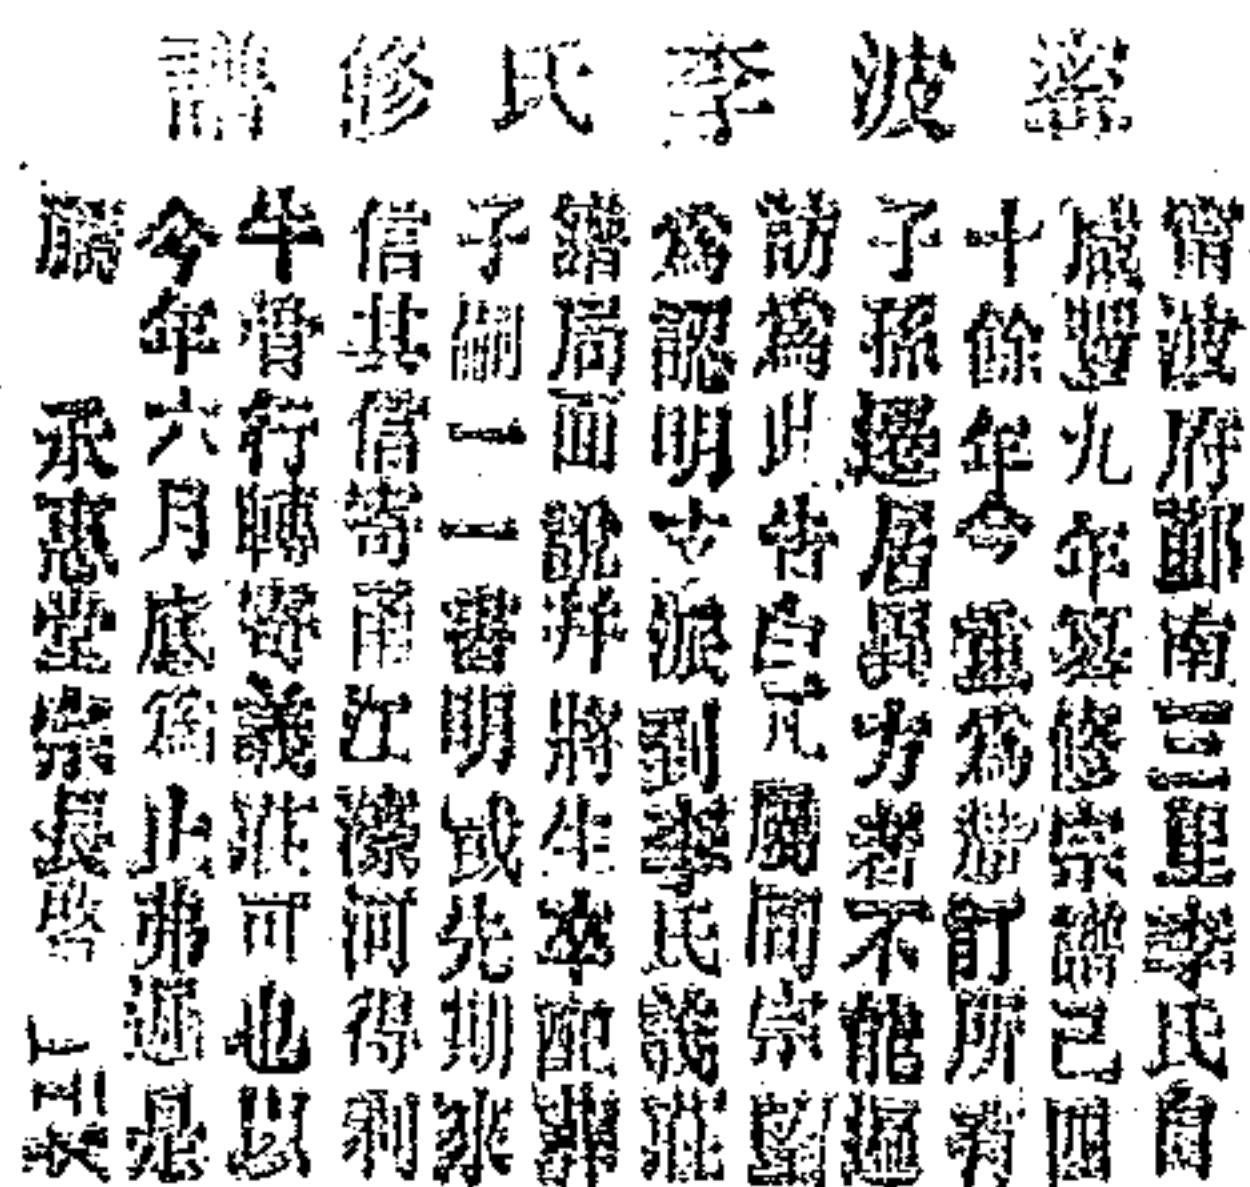 寧波李氏修譜
甯波府鄞南三里李氏自
咸豐九年纂修宗譜已四
十餘年今重為諮訂所有
子孫遷居異方者不能遍
訪為此告白凡屬同宗望
為認明支派到李氏義莊
譜局面說并將生卒配葬
子嗣一一書明或先期來
信其信寄甬江濠河得利
牛骨行轉寄義莊可也以
今年六月底為止弗延是
禱
承志堂宗長啓